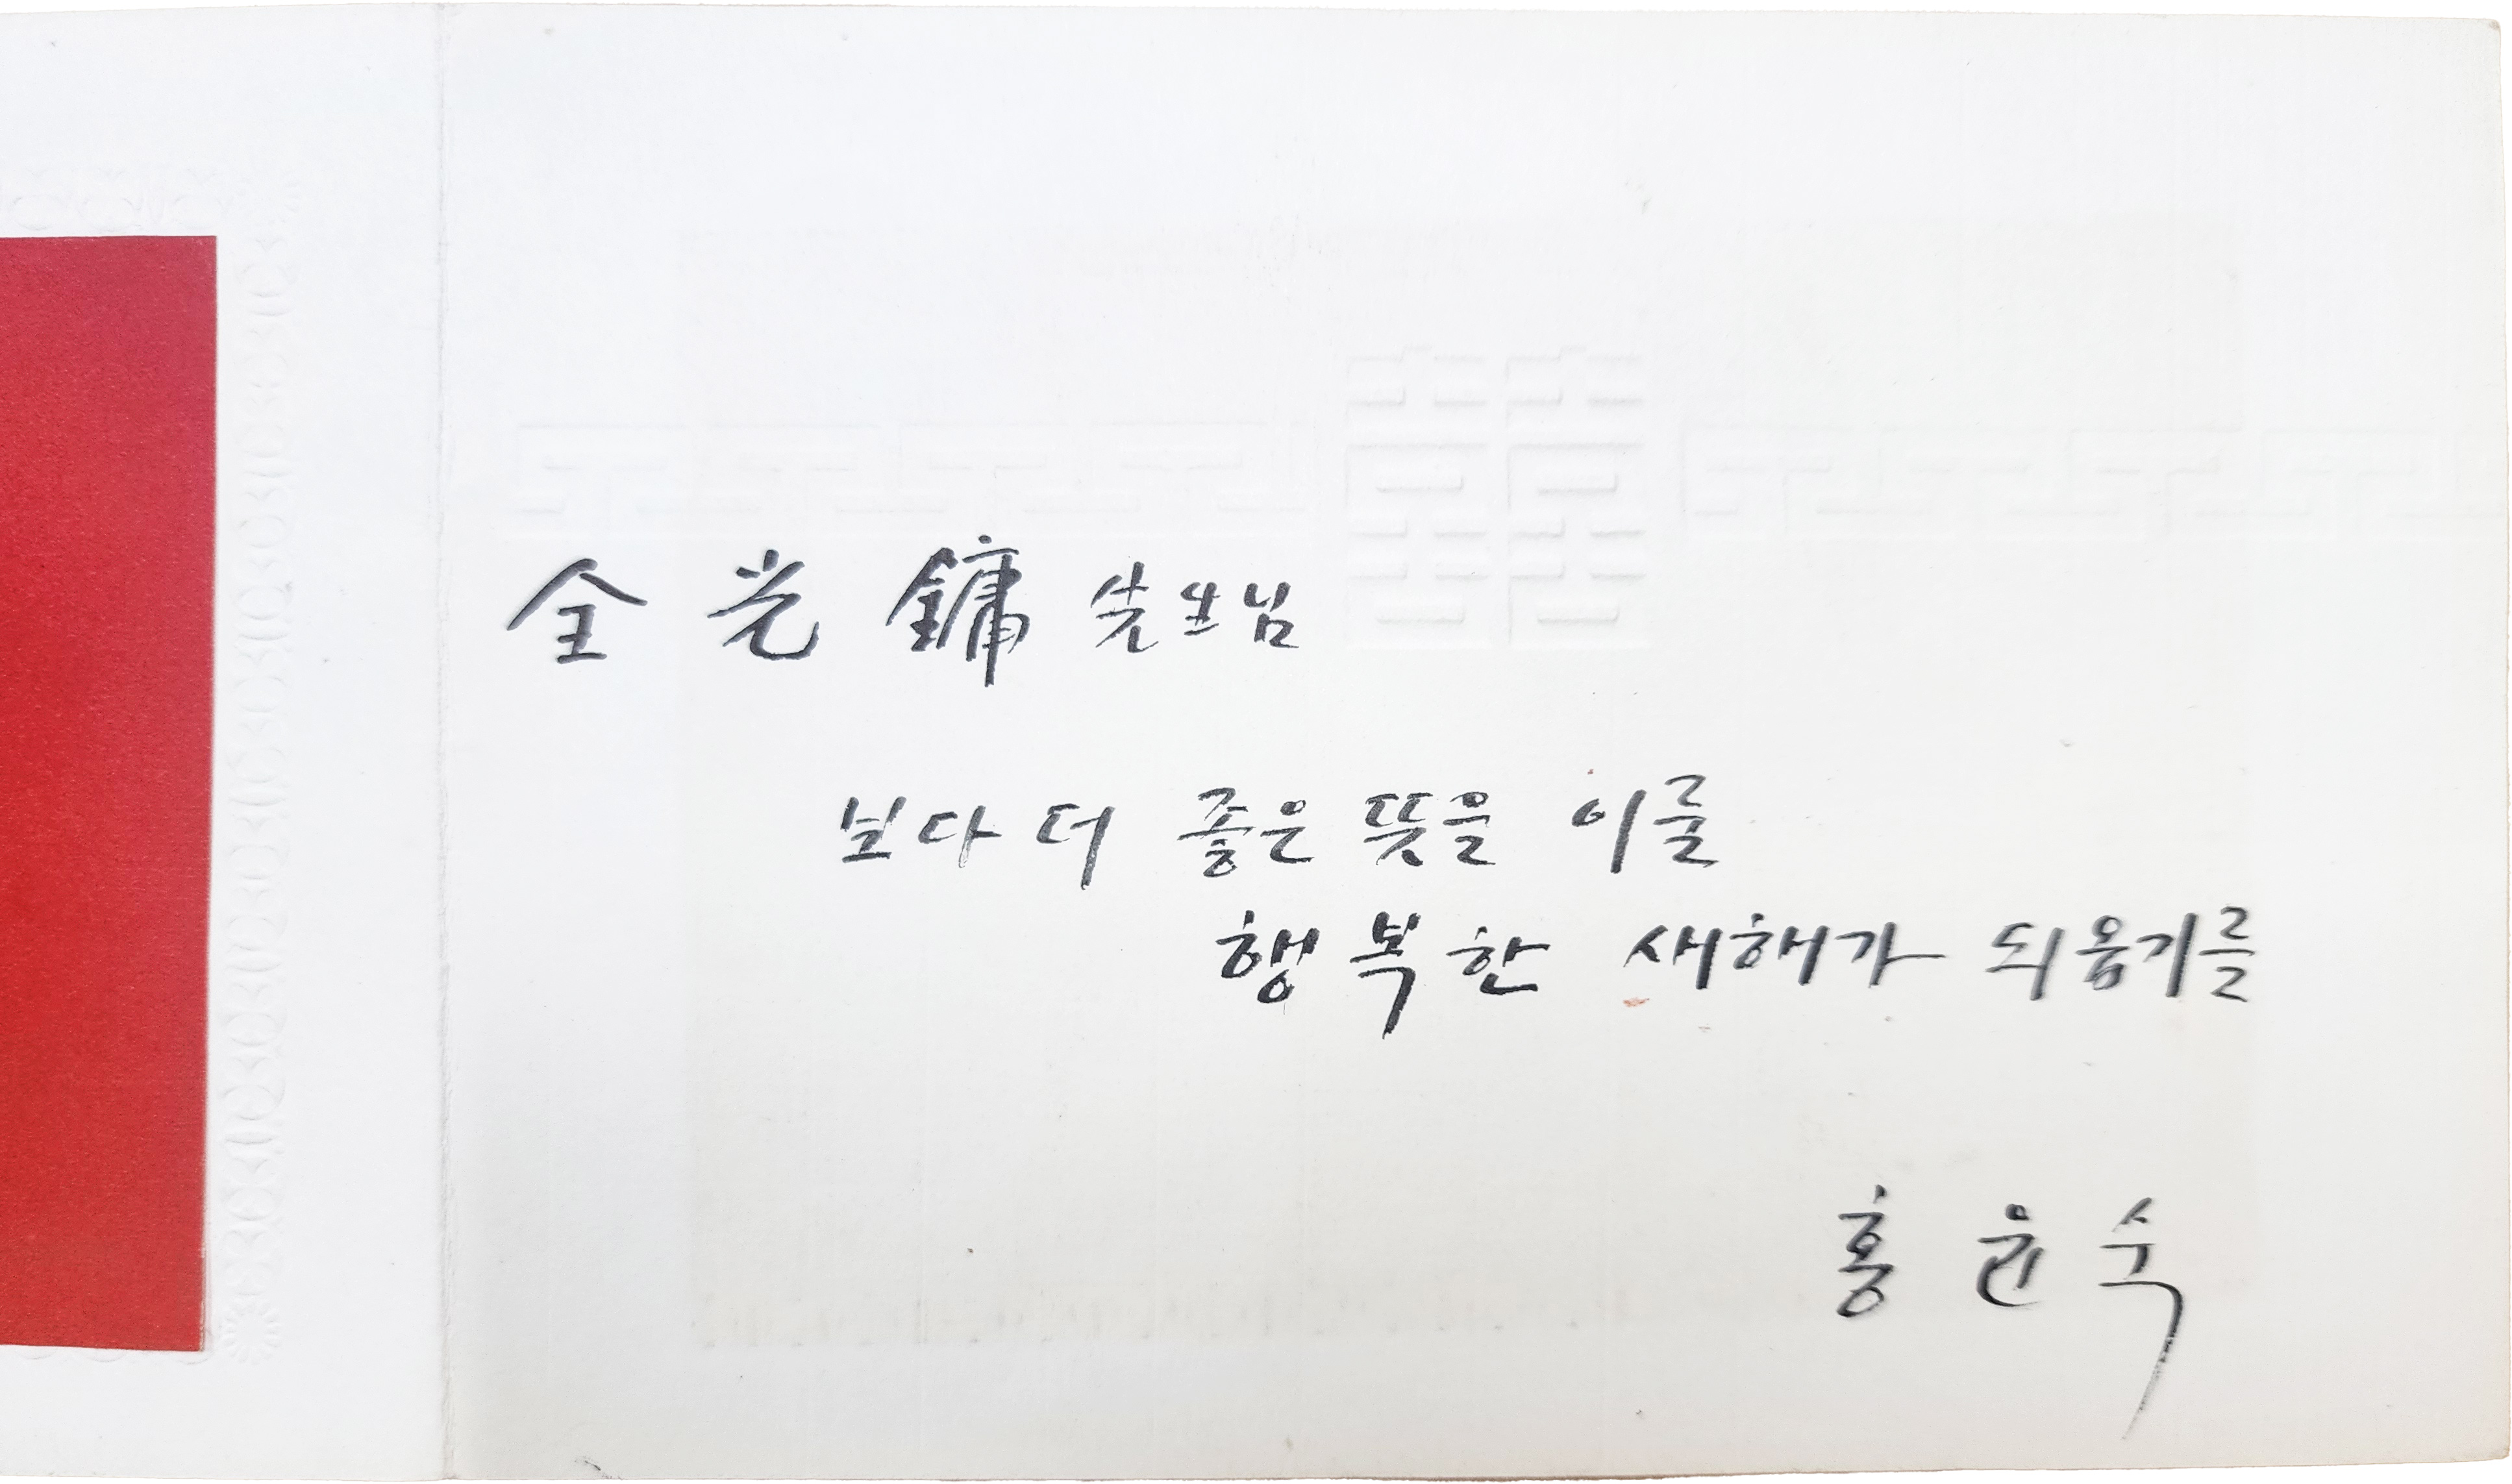 全光鏞 先生님
보다 더 좋은 뜻을 이룰
행복한 새해가 되옵기를
홍윤숙